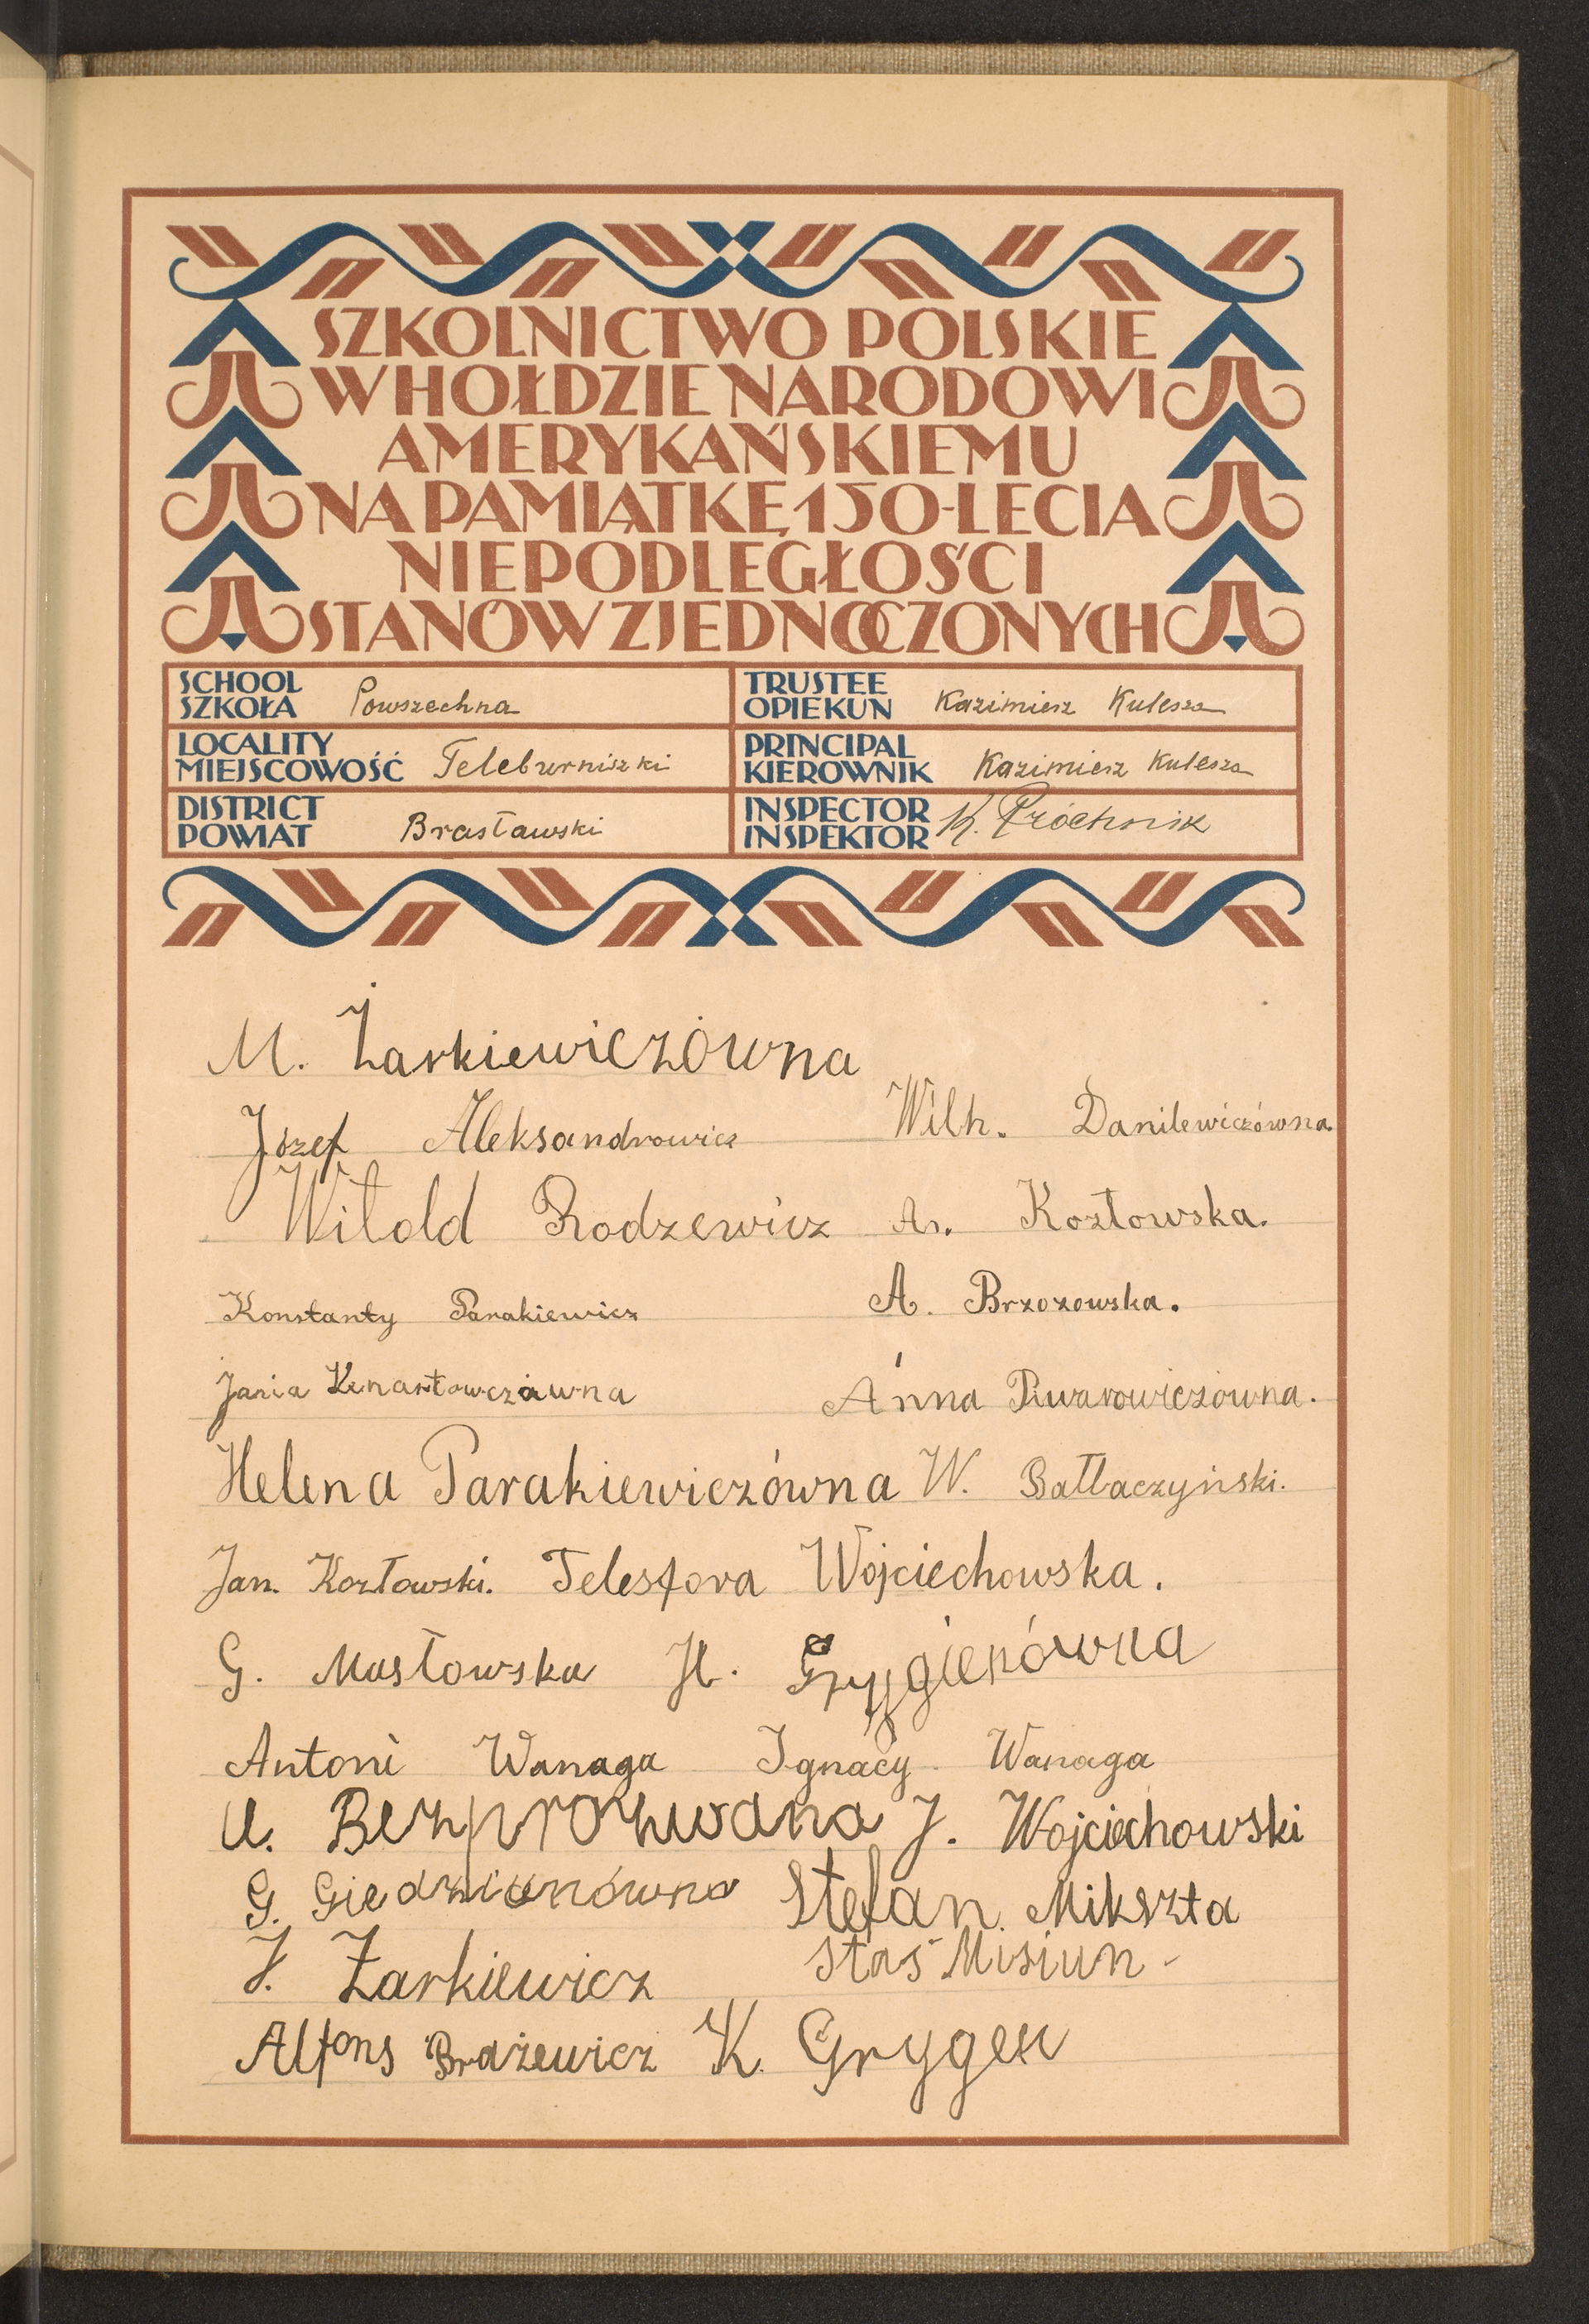 SZKOLNICTWO POLSKIE
W HOŁDZIE NARODOWI
AMERYKAŃSKIEMU
NA PAMIĄTKĘ 150-LECIA
NIEPODLEGŁOŚCI
STANÓW ZJEDNOCZONYCH
SCHOOL
SZKOŁA Powszechna
TRUSTEE
OPIEKUN Kazimierz Kulesza
LOCALITY
MIEJSCOWOŚĆ Teleburniszki
PRINCIPAL
KIEROWNIK Kazimierz Kulesza
DISTRICT
POWIAT Brasławski
INSPECTOR
INSPEKTOR K. Próchnik
M. Żarkiewiczówna
Józef Aleksandrowicz Wilh. Danilewiczówna
Witold Rodzewicz An. Kozłowska.
Konstanty Parakiewicz A. Brzozowska.
Jania Anna
Helena Parakiewiczówna W.
Jan. Kozłowski. Telesfora Wojciechowska.
G. Masłowska H. Grygienówna
Antoni Wanaga Ignacy Wanaga
U. Bezprozwana J. Wojciechowski
G. Giedziunówna Stefan Mikszta
J. Żarkiewicz Staś Misiun -
Alfons Brażewicz K. Grygen